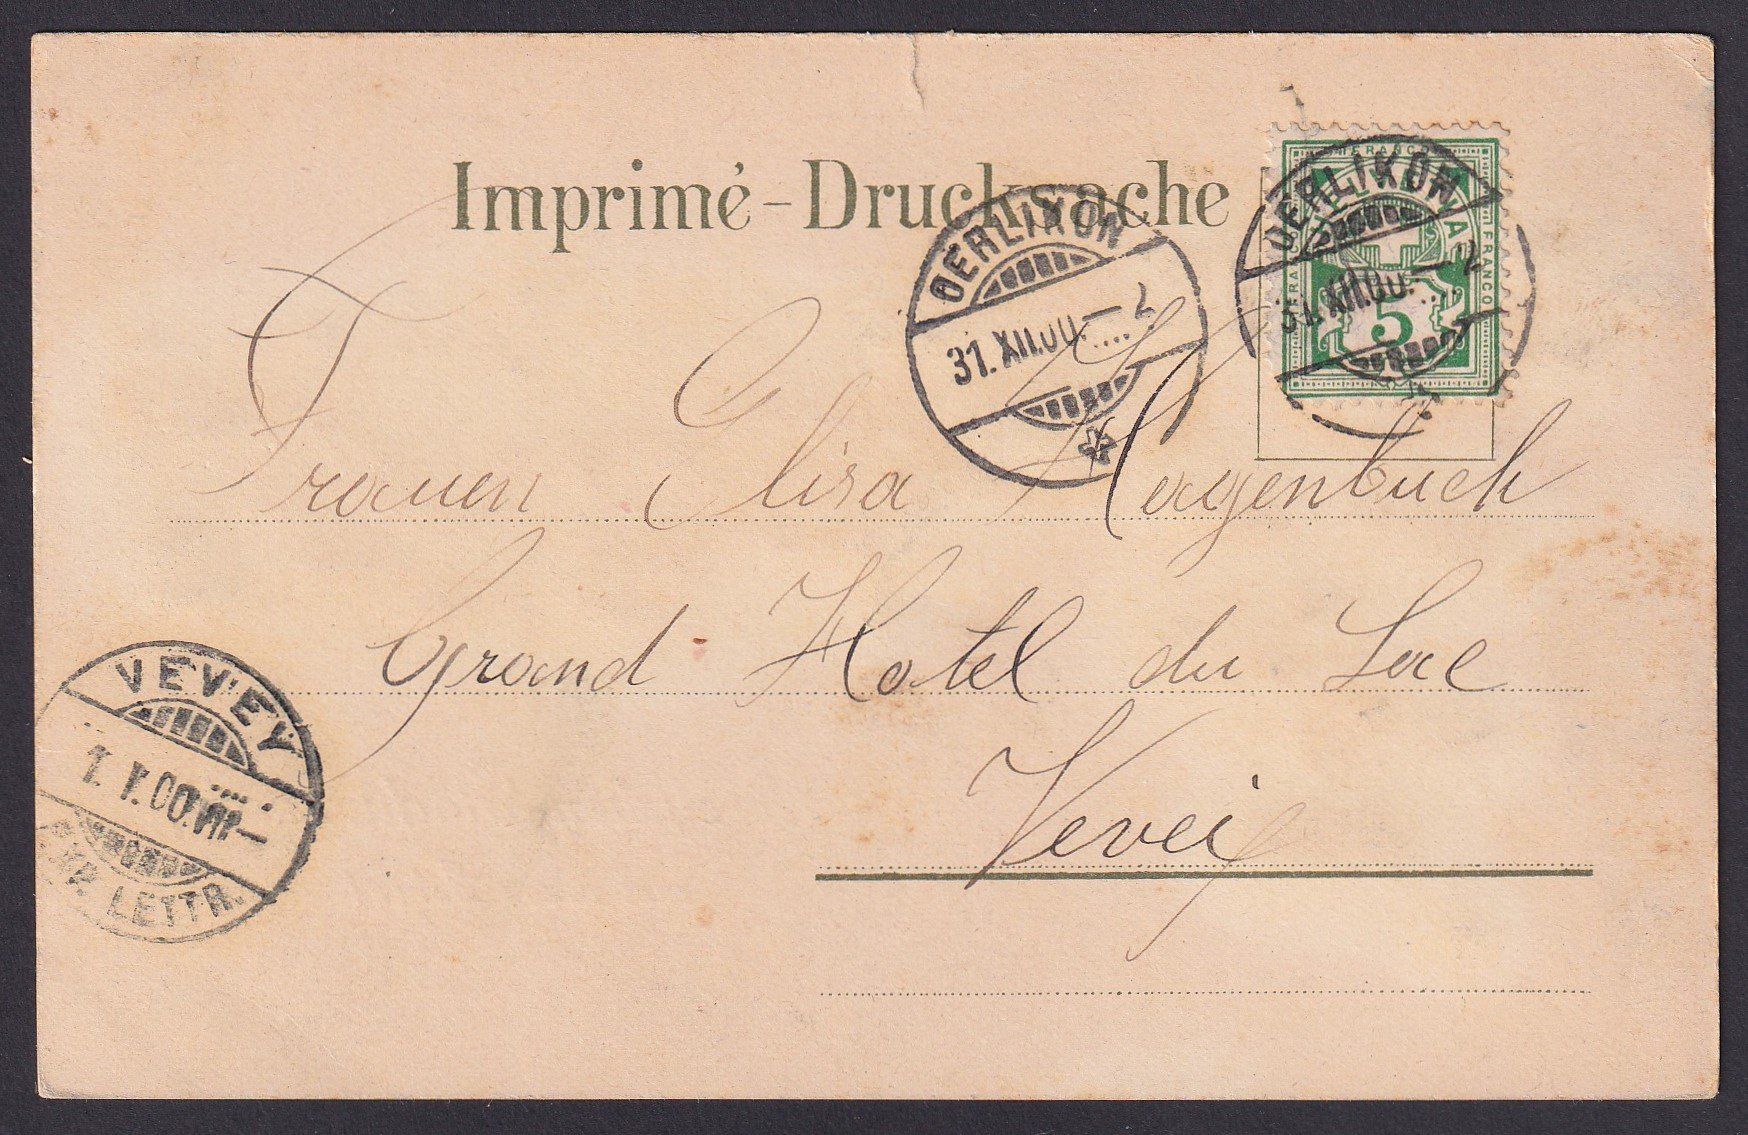 Imprimé-Drucksache
FRANCO
FRANCO
5
OERLIKON
31.XII.00.—
OERLIKON
31.XII.00.—
Frauen Elisa Hagenbuch
Grand Hotel du Lac
Vevei
VEVEY
1.I.00.VII—
EXP. LETTR.